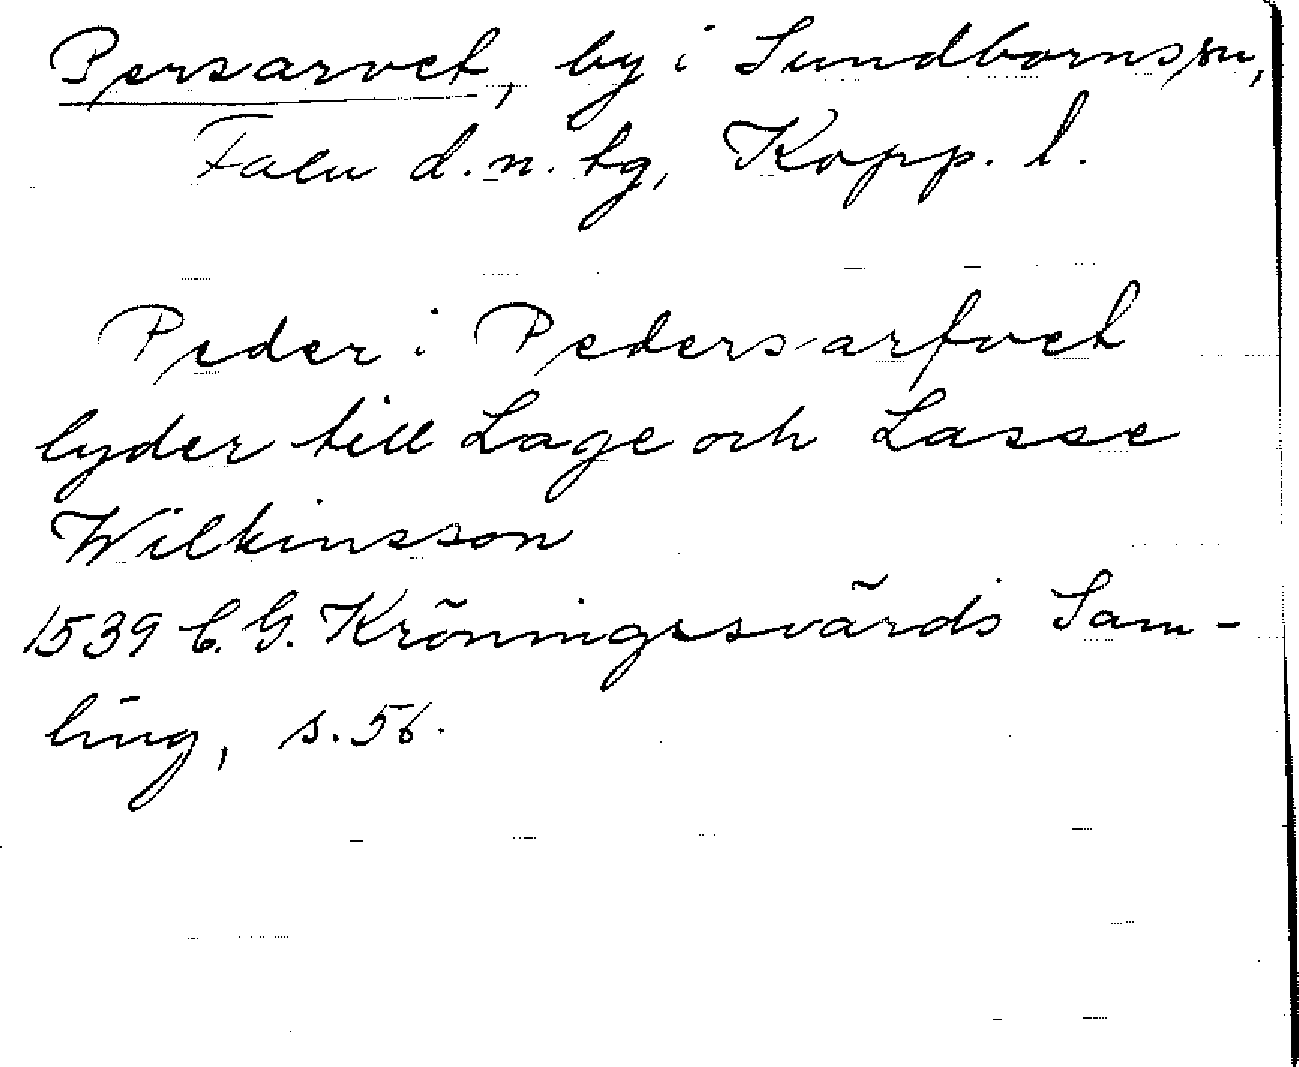 Persarvet, by i Sundborns sn,
Falu d. n. tg, Kopp. l.
Peder i Pedersarfvet
lyder till Lage och Lasse
Wilkinsson
1539 C. G. Kröningssvärds Sam-
ling, s. 56.